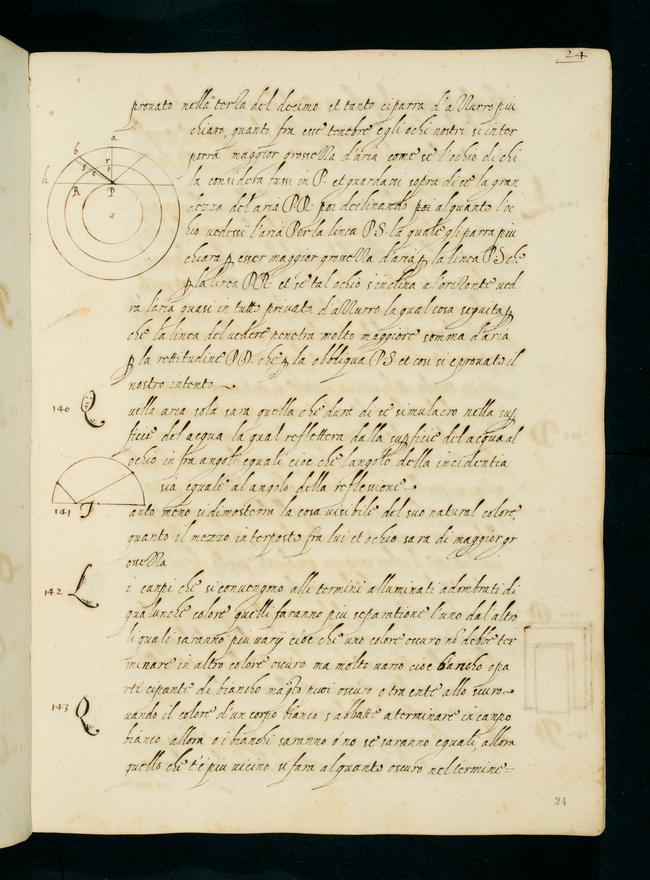 24
prouato nella terza del decimo et tanto ci parra d'azzurro piu
chiaro, quanto fra esse tenebre e gli ochi nostri si inter
porra maggior grossezza d'aria come se l'ochio di chi
la considera fussi in P. et guardassi sopra di se la gran
dezza del'aria P R poi declinando poi alquanto l'oc
hio uedessi l'aria Per la linea P S la quale gli parra piu
chiara p esser maggior grossezza d'aria p la linea P S che
p la linea P R et se tal ochio s'inclina a l'orizonte ued
ra l'aria quasi in tutto priuata d'azzurro la qual cosa seguita p
che la linea del uedere penetra molto maggiore somma d'aria
p la rettitudine P D che p la obbliqua P S et cosi si e prouato il
nostro intento
a
b
h
r
s
c
R
P
140 Q
uella aria sola sara quella che dara di se simulacro nella sup
ficie del acqua la qual reflettera dalla supficie del acqua al
ochio in fra angoli equali cioe che l'angolo della incidentia
sia equale al angolo della reflessione
141 T
anto meno si dimosterra la cosa uisibile del suo natural colore,
quanto il mezzo interposto fra lui et ochio sara di maggior gr
ossezza
142 L
i canpi che si conuengono alli termini alluminati adombrati di
qualunche colore quelli faranno piu separatione l'uno dal'altro
li quali saranno piu varij cioe che uno colore oscuro nō debbe ter
minare in altro colore oscuro ma molto uario cioe biancho o pa
rticipante di biancho
143 Q
uando il colore d'un corpo bianco s'abbatte a terminare in canpo
bianco allora o i bianchi saranno o no se saranno equali, allora
quello che t'e piu uicino si fara alquanto oscuro nel termine
24